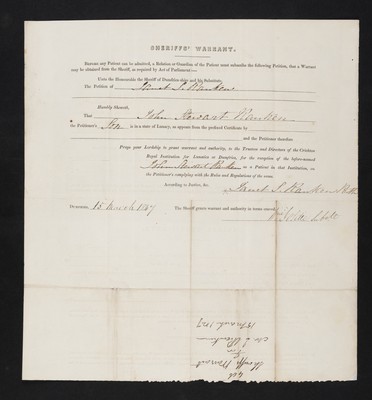 SHERIFFS' WARRANT.
BEFORE any Patient can be admitted, a Relation or Guardian of the Patient must subscribe the following Petition, that a Warrant
may be obtained from the Sheriff, as required by Act of Parliament:—
Unto the Honourable the Sheriff of Dumfries-shire and his Substitute,
The Petition of Janet
Humbly Sheweth,
That John Stewart
the Petitioner's Son is in a state of Lunacy, as appears from the prefixed Certificate by
and the Petitioner therefore
Prays your Lordship to grant warrant and authority, to the Trustees and Directors of the Crichton
Royal Institution for Lunatics at Dumfries, for the reception of the before-named
John Stewart as a Patient in that Institution, on
the Petitioner's complying with the Rules and Regulations of the same.
According to Justice, &c.
Janet
DUMFRIES, 15 March 1847 The Sheriff grants warrant and authority in terms
Sheriffs Warrant
for
15 March 1847